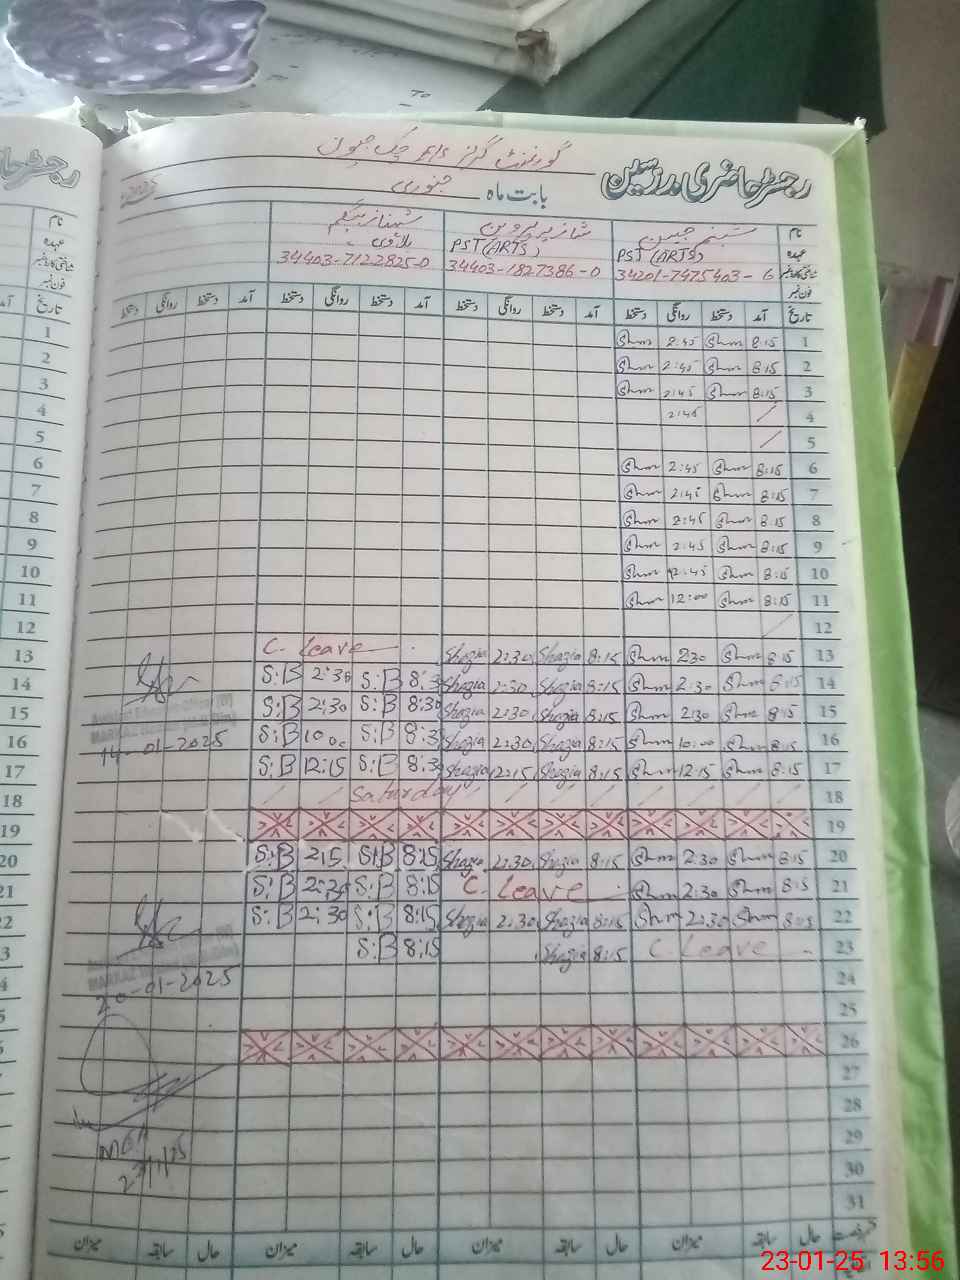 To
گورنمنٹ گرلز E/S چک جیون
رجسٹر حاضری مدرسین
بابت ماہ جنوری 2025
نام شبنم جبین شازیہ پروین شہناز بیگم
عہدہ PST (ARTS) PST (ARTS)
شناختی کارڈ نمبر 34201-7475403-6 34403-1827386-0 34403-7122825-0
فون نمبر
تاریخ آمد دستخط روانگی دستخط آمد دستخط روانگی دستخط آمد دستخط روانگی دستخط آمد دستخط روانگی دستخط
1 8:15 Shm 2:45 Shm
2 8:15 Shm 2:45 Shm
3 8:15 Shm 2:45 Shm
4 2:45
5
6 8:15 Shm 2:45 Shm
7 8:15 Shm 2:45 Shm
8 8:15 Shm 2:45 Shm
9 8:15 Shm 2:45 Shm
10 8:15 Shm 2:45 Shm
11 8:15 Shm 12:00 Shm
12
13 8:15 Shm 2:30 Shm 8:15 Shazia 2:30 Shazia C. Leave
14 8:15 Shm 2:30 Shm 8:15 Shazia 2:30 Shazia 8:30 S:B 2:30 S:B
15 8:15 Shm 2:30 Shm 8:15 Shazia 2:30 Shazia 8:30 S:B 2:30 S:B
16 8:15 Shm 10:00 Shm 8:15 Shazia 2:30 Shazia 8:30 S:B 10:00 S:B
14-01-2025
17 8:15 Shm 12:15 Shm 8:15 Shazia 12:15 Shazia 8:30 S:B 12:15 S:B
18 Saturday
19
20 8:15 Shm 2:30 Shm 8:15 Shazia 2:30 Shazia 8:15 S:B 2:15 S:B
21 8:15 Shm 2:30 Shm C. Leave 8:15 S:B 2:30 S:B
22 8:15 Shm 2:30 Shm 8:15 Shazia 2:30 Shazia 8:15 S:B 2:30 S:B
23 C. Leave 8:15 Shazia 8:15 S:B
24
20-01-2025
25
26
27
28
29
MEA
23/1/25
30
31
میزان حال سابقہ میزان حال سابقہ میزان حال سابقہ میزان
23-01-25 13:56